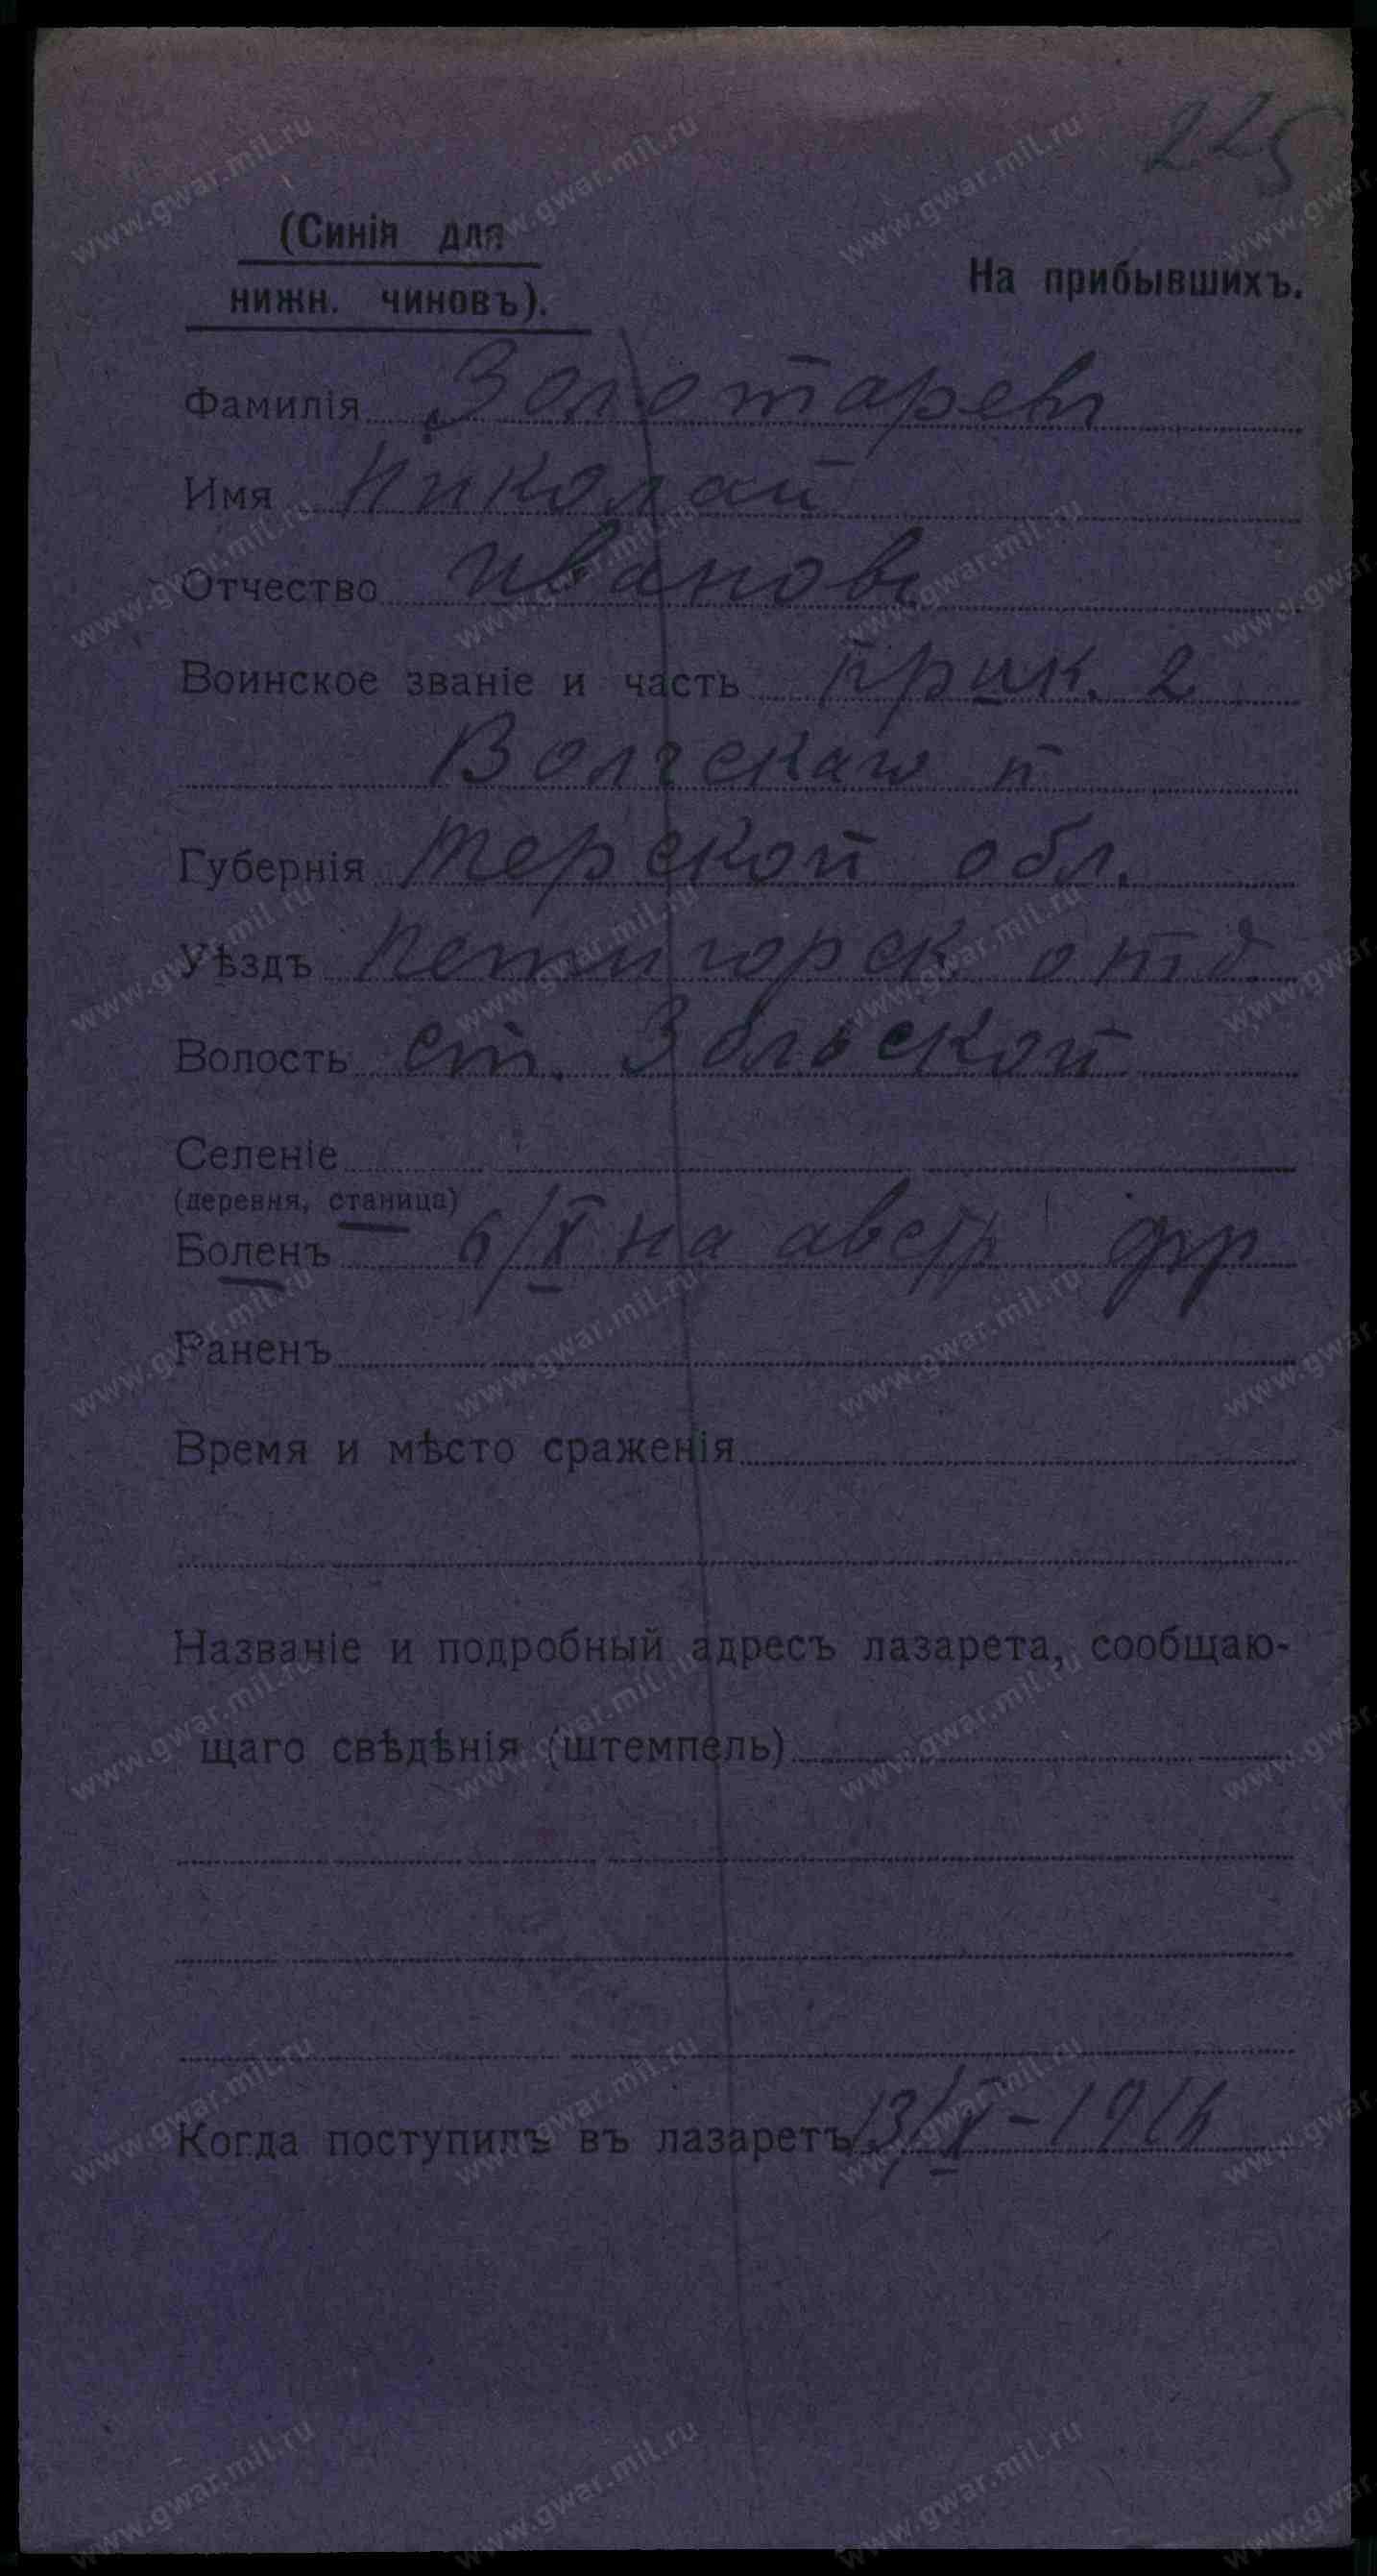 225
(Синія для
нижн. чиновъ).
На прибывшихъ.
Фамилія Золотаревъ
Имя Николай
Отчество Ивановъ
Воинское званіе и часть прик. 2
Волгскаго п
Губернія Терской обл.
Уѣздъ Петигорск отд
Волость ст. Зольской
Селеніе
(деревня, станица)
Боленъ 6/X на австр фр
Раненъ
Время и мѣсто сраженія
Названіе и подробный адресъ лазарета, сообщаю-
щаго свѣдѣнія (штемпель)
Когда поступилъ въ лазаретъ 13/X - 1916